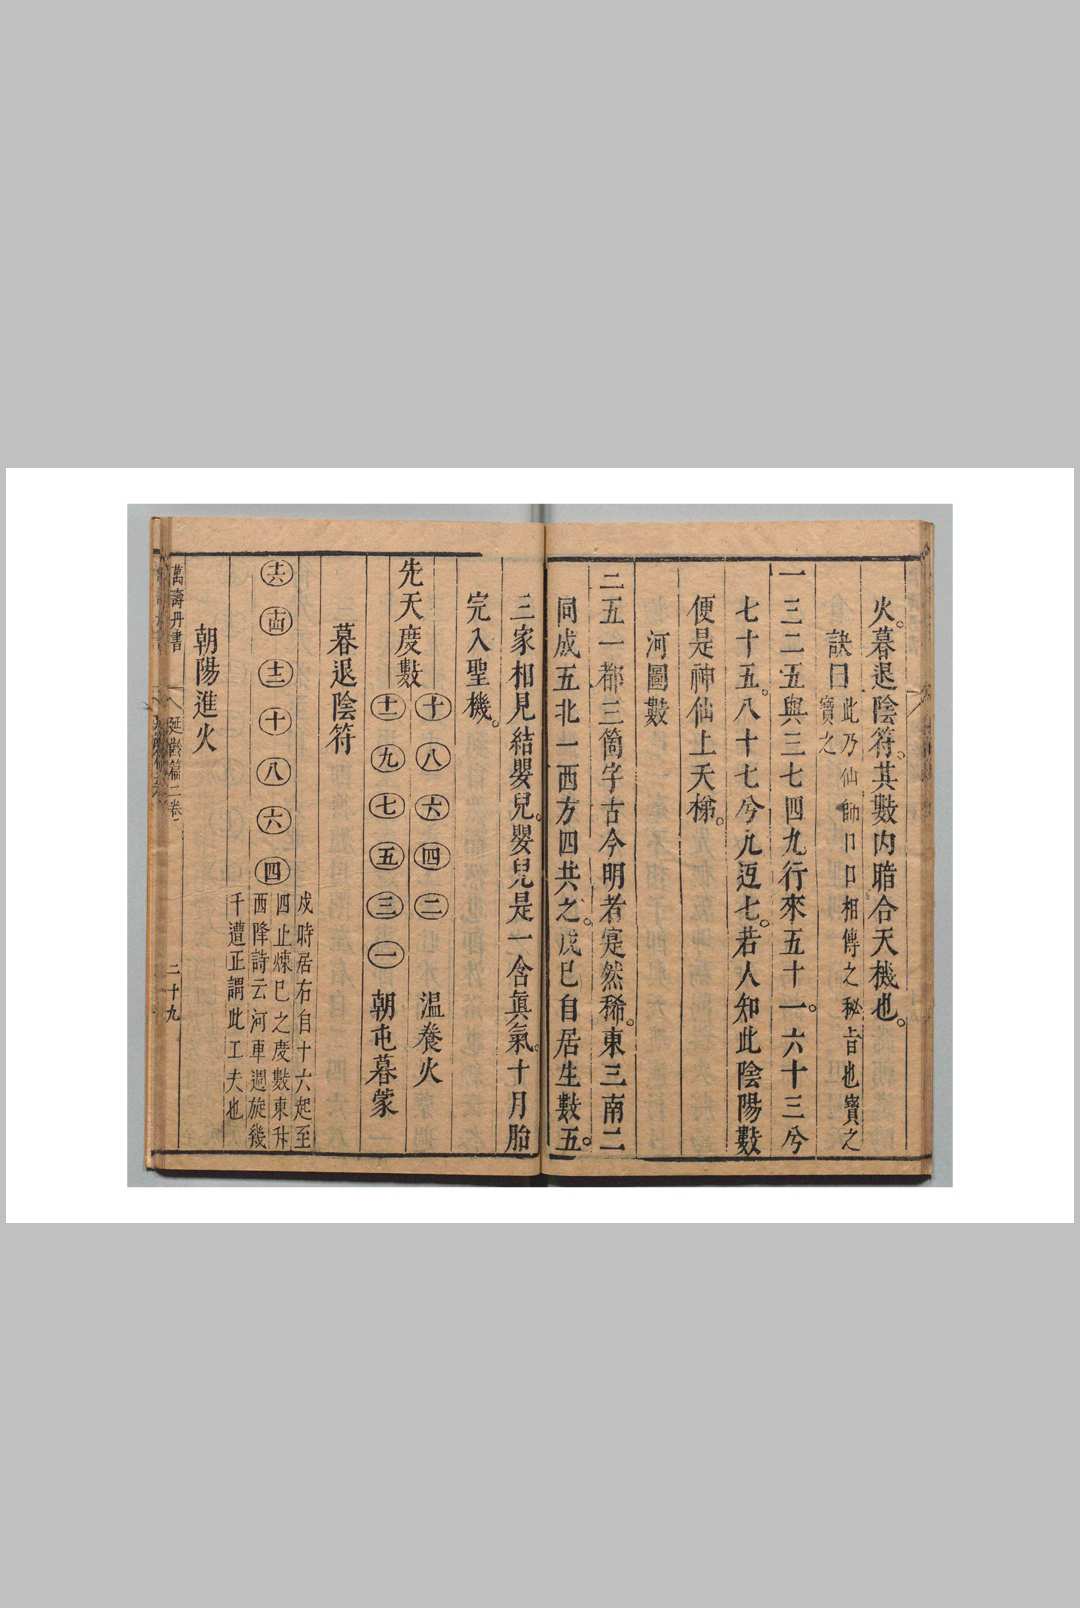 火。暮退陰符。其數內暗合天機也。
訣曰此乃仙師口口相傳之秘旨也寶之
寶之
一三二五與三七四九行來五十一。六十三兮
七十五。八十七兮九返七。若人知此陰陽數
便是神仙上天梯。
河圖數
二五一都三箇字古今明者寔然稀。東三南二
同成五北一西方四共之。戊巳自居生數五。
三家相見結嬰兒。嬰兒是一含眞氣。十月胎
完入聖機。
十 八 六 四 二 温養火
先天度數
十一 九 七 五 三 一 朝屯暮蒙
暮退陰符
戌時居右自十六起至
十六 十四 十二 十 八 六 四 四止煉巳之度數東升
西降詩云河車週旋幾
千遭正謂此工夫也
朝陽進火
萬壽丹書 延齡篇二卷 二十九